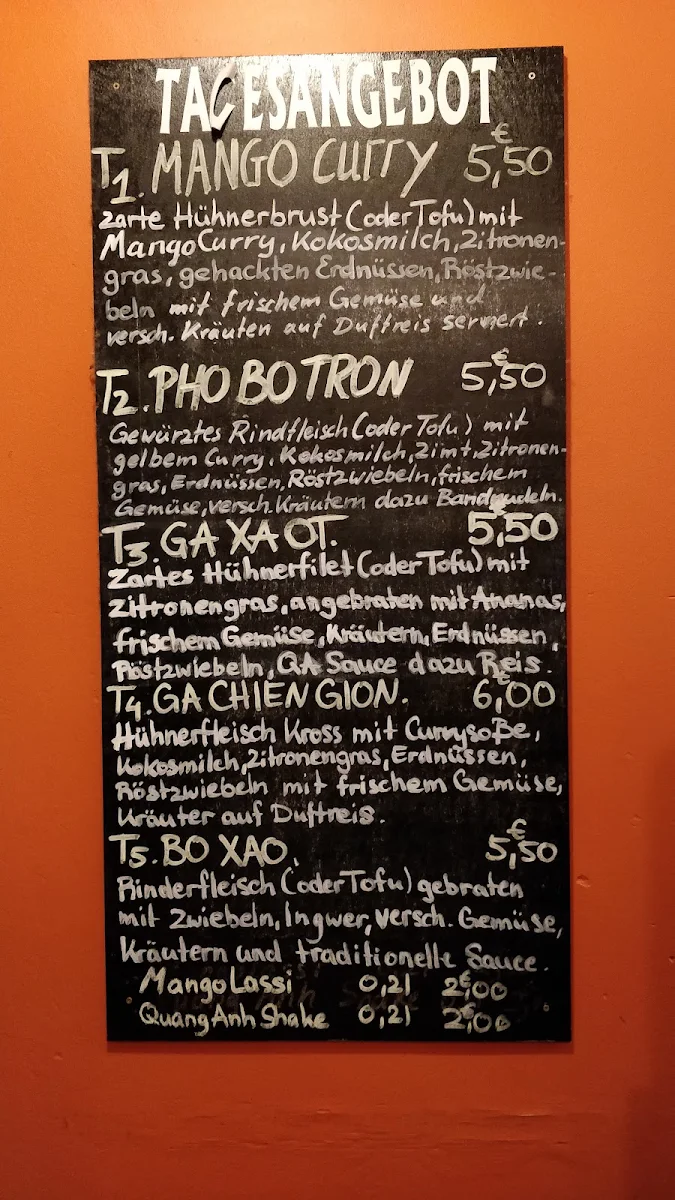 TAGESANGEBOT
T1. MANGO CURRY 5,50 €
zarte Hühnerbrust (oder Tofu) mit
Mango Curry, Kokosmilch, Zitronen-
gras, gehackten Erdnüssen, Röstzwie-
beln mit frischem Gemüse und
versch. Kräuten auf Duftreis serviert.
T2. PHO BO TRON 5,50 €
Gewürztes Rindfleisch (oder Tofu) mit
gelbem Curry, Kokosmilch, Zimt, Zitronen-
gras, Erdnüssen, Röstzwiebeln, frischem
Gemüse, versch. Kräutern dazu Bandnudeln.
T3. GA XA OT. 5,50 €
Zartes Hühnerfilet (oder Tofu) mit
Zitronengras, angebraten mit Ananas,
frischem Gemüse, Kräutern, Erdnüssen,
Röstzwiebeln, QA Sauce dazu Reis.
T4. GA CHIEN GION. 6,00 €
Hühnerfleisch Kross mit Currysoße,
Kokosmilch, Zitronengras, Erdnüssen,
Röstzwiebeln mit frischem Gemüse,
Kräuter auf Duftreis.
T5. BO XAO. 5,50 €
Rinderfleisch (oder Tofu) gebraten
mit Zwiebeln, Ingwer, versch. Gemüse,
Kräutern und traditionelle Sauce.
Mango Lassi 0,2l 2,00 €
Quang Anh Shake 0,2l 2,00 €